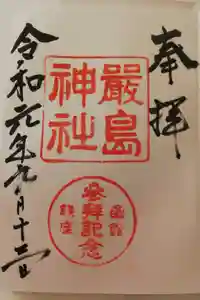 奉拝
嚴島
神社
函館
參拜記念
鎮座
令和元年九月十三日